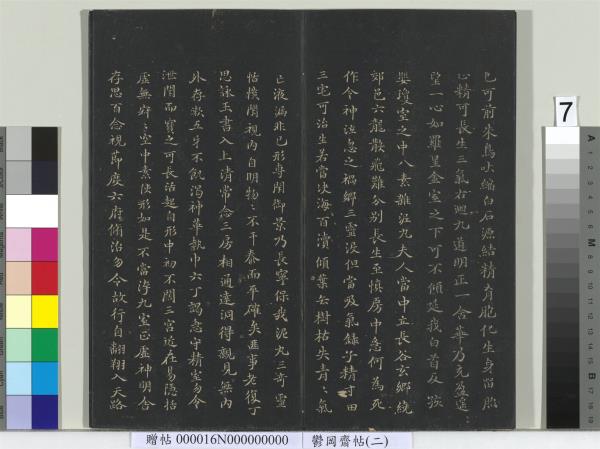 已可前朱鳥吐縮白石源結精育胞化生身留胞
止精可長生三氣右迴九道明正一含華乃充盈遙
望一心如羅星金室之下可不傾延我白首反孩
嬰瓊室之中八素集泥丸夫人當中立長谷玄鄉繞
郊邑六龍散飛難分別長生至慎房中急何為死
作令神泣忽之禍鄉三靈沒但當吸氣錄子精寸田
尺宅可治生若當決海百瀆傾葉去樹枯失青青氣
亡液漏非己形專閉御景乃長寧保我泥丸三奇靈
恬惔閉視內自明物物不干泰而平愨矣匪事老復丁
思詠玉書入上清常念三房相通達洞得視見無內
外存漱五牙不飢渴神華執巾六丁謁急守精室勿令
泄閉而寶之可長活起自形中初不闊三宮近在易隱括
虛無寂寂空中素使形如是不當污九室正虛神明舍
存思百念視節度六府修治勿令故行自翱翔入天路
7
贈帖 000016N000000000 鬱岡齋帖(二)